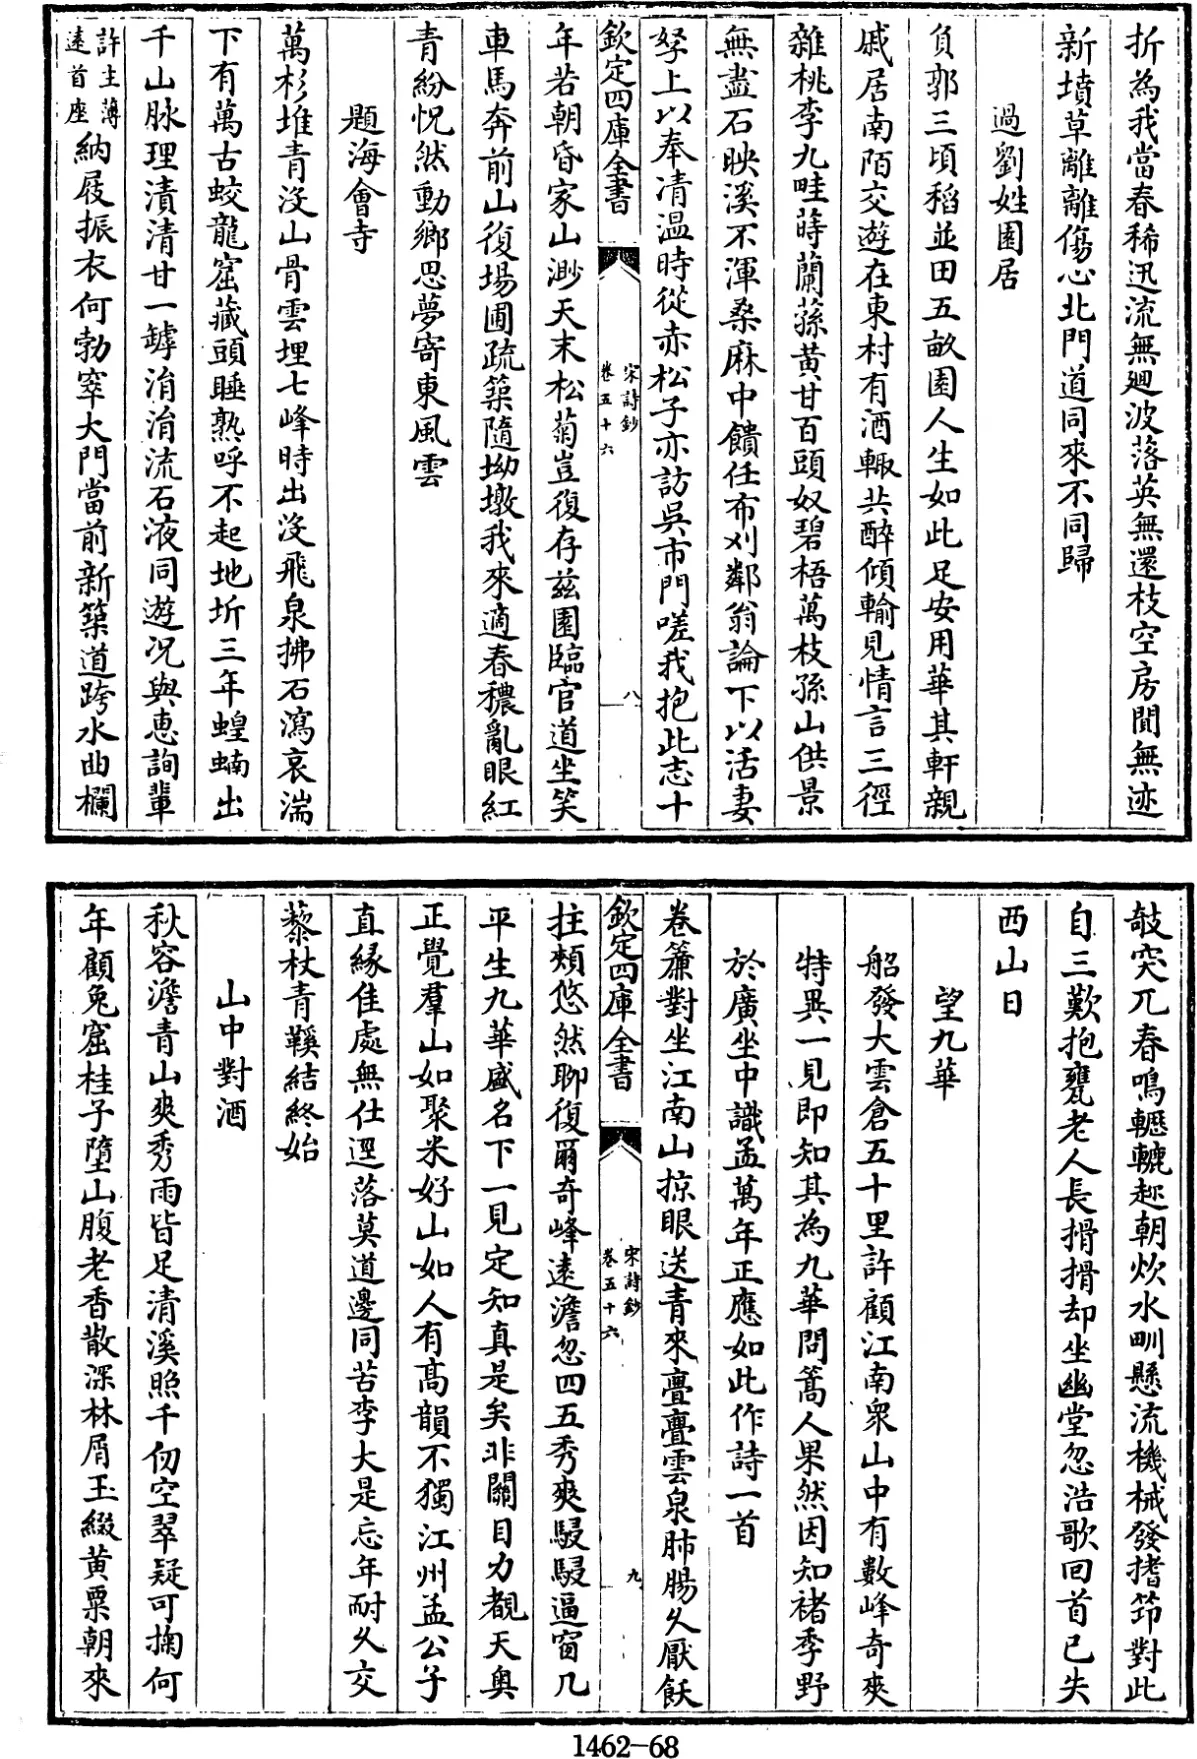 折為我當春稀迅流無迴波落英無還枝空房閴無迹
新墳草離離傷心北門道同來不同歸
過劉姓園居
負郭三頃稻並田五畝園人生如此足安用華其軒親
戚居南陌交遊在東村有酒輙共醉傾輸見情言三徑
雜桃李九畦蒔蘭蓀黄甘百頭奴碧梧萬枝孫山供景
無盡石映溪不渾桑麻中饋任布刈鄰翁論下以活妻
孥上以奉清温時從赤松子亦訪吳市門嗟我抱此志十
欽定四庫全書
宋詩鈔
卷五十六
八
年若朝昏家山渺天末松菊豈復存兹園臨官道坐笑
車馬奔前山復場圃疏築隨坳墩我來適春穠亂眼紅
青紛怳然動鄉思夢寄東風雲
題海會寺
萬杉堆青没山骨雲埋七峰時出没飛泉拂石瀉哀湍
下有萬古蛟龍窟藏頭睡熟呼不起地坼三年蝗蝻出
千山脉理漬清甘一罅涓涓流石液同遊况與惠詢輩
許主薄
逺首座
納屐振衣何勃窣大門當前新築道跨水曲欄
攲突兀春鳴轣轆趂朝炊水甽懸流機械發搘笻對此
自三歎抱甕老人長搰搰却坐幽堂忽浩歌回首已失
西山日
望九華
船發大雲倉五十里許顧江南衆山中有數峰奇爽
特異一見即知其為九華問篙人果然因知褚季野
於廣坐中識孟萬年正應如此作詩一首
卷簾對坐江南山掠眼送青來亹亹雲泉肺腸久厭飫
欽定四庫全書
宋詩鈔
卷五十六
九
拄頰悠然聊復爾奇峰逺澹忽四五秀爽駸駸逼窗几
平生九華盛名下一見定知真是矣非關目力覩天奥
正覺羣山如聚米好山如人有高韻不獨江州孟公子
直緣佳處無仕逕落莫道邊同苦李大是忘年耐久交
藜杖青鞵結終始
山中對酒
秋容澹青山爽秀雨皆足清溪照千仞空翠疑可掬何
年顧兔窟桂子墮山腹老香散深林屑玉綴黄粟朝來
1462-68